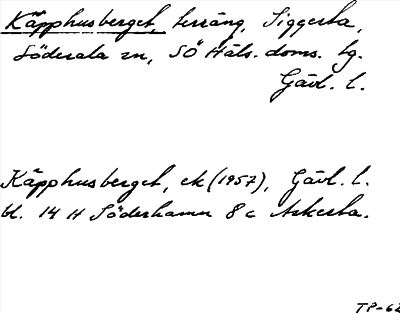 Käpphusberget, terräng, Siggesta,
Söderala sn, SÖ Häls. doms. tg.
Gävl. l.
Käpphusberget, ek (1957), Gävl. l.
bl. 14 H Söderhamn 8 c Askesta.
TP-62